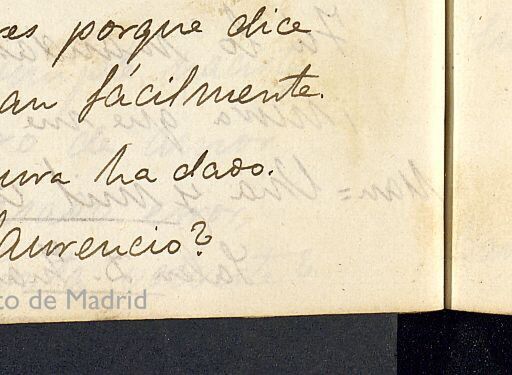 res porque dice
an fácilmente.
urra ha dado.
Laurencio?
to de Madrid